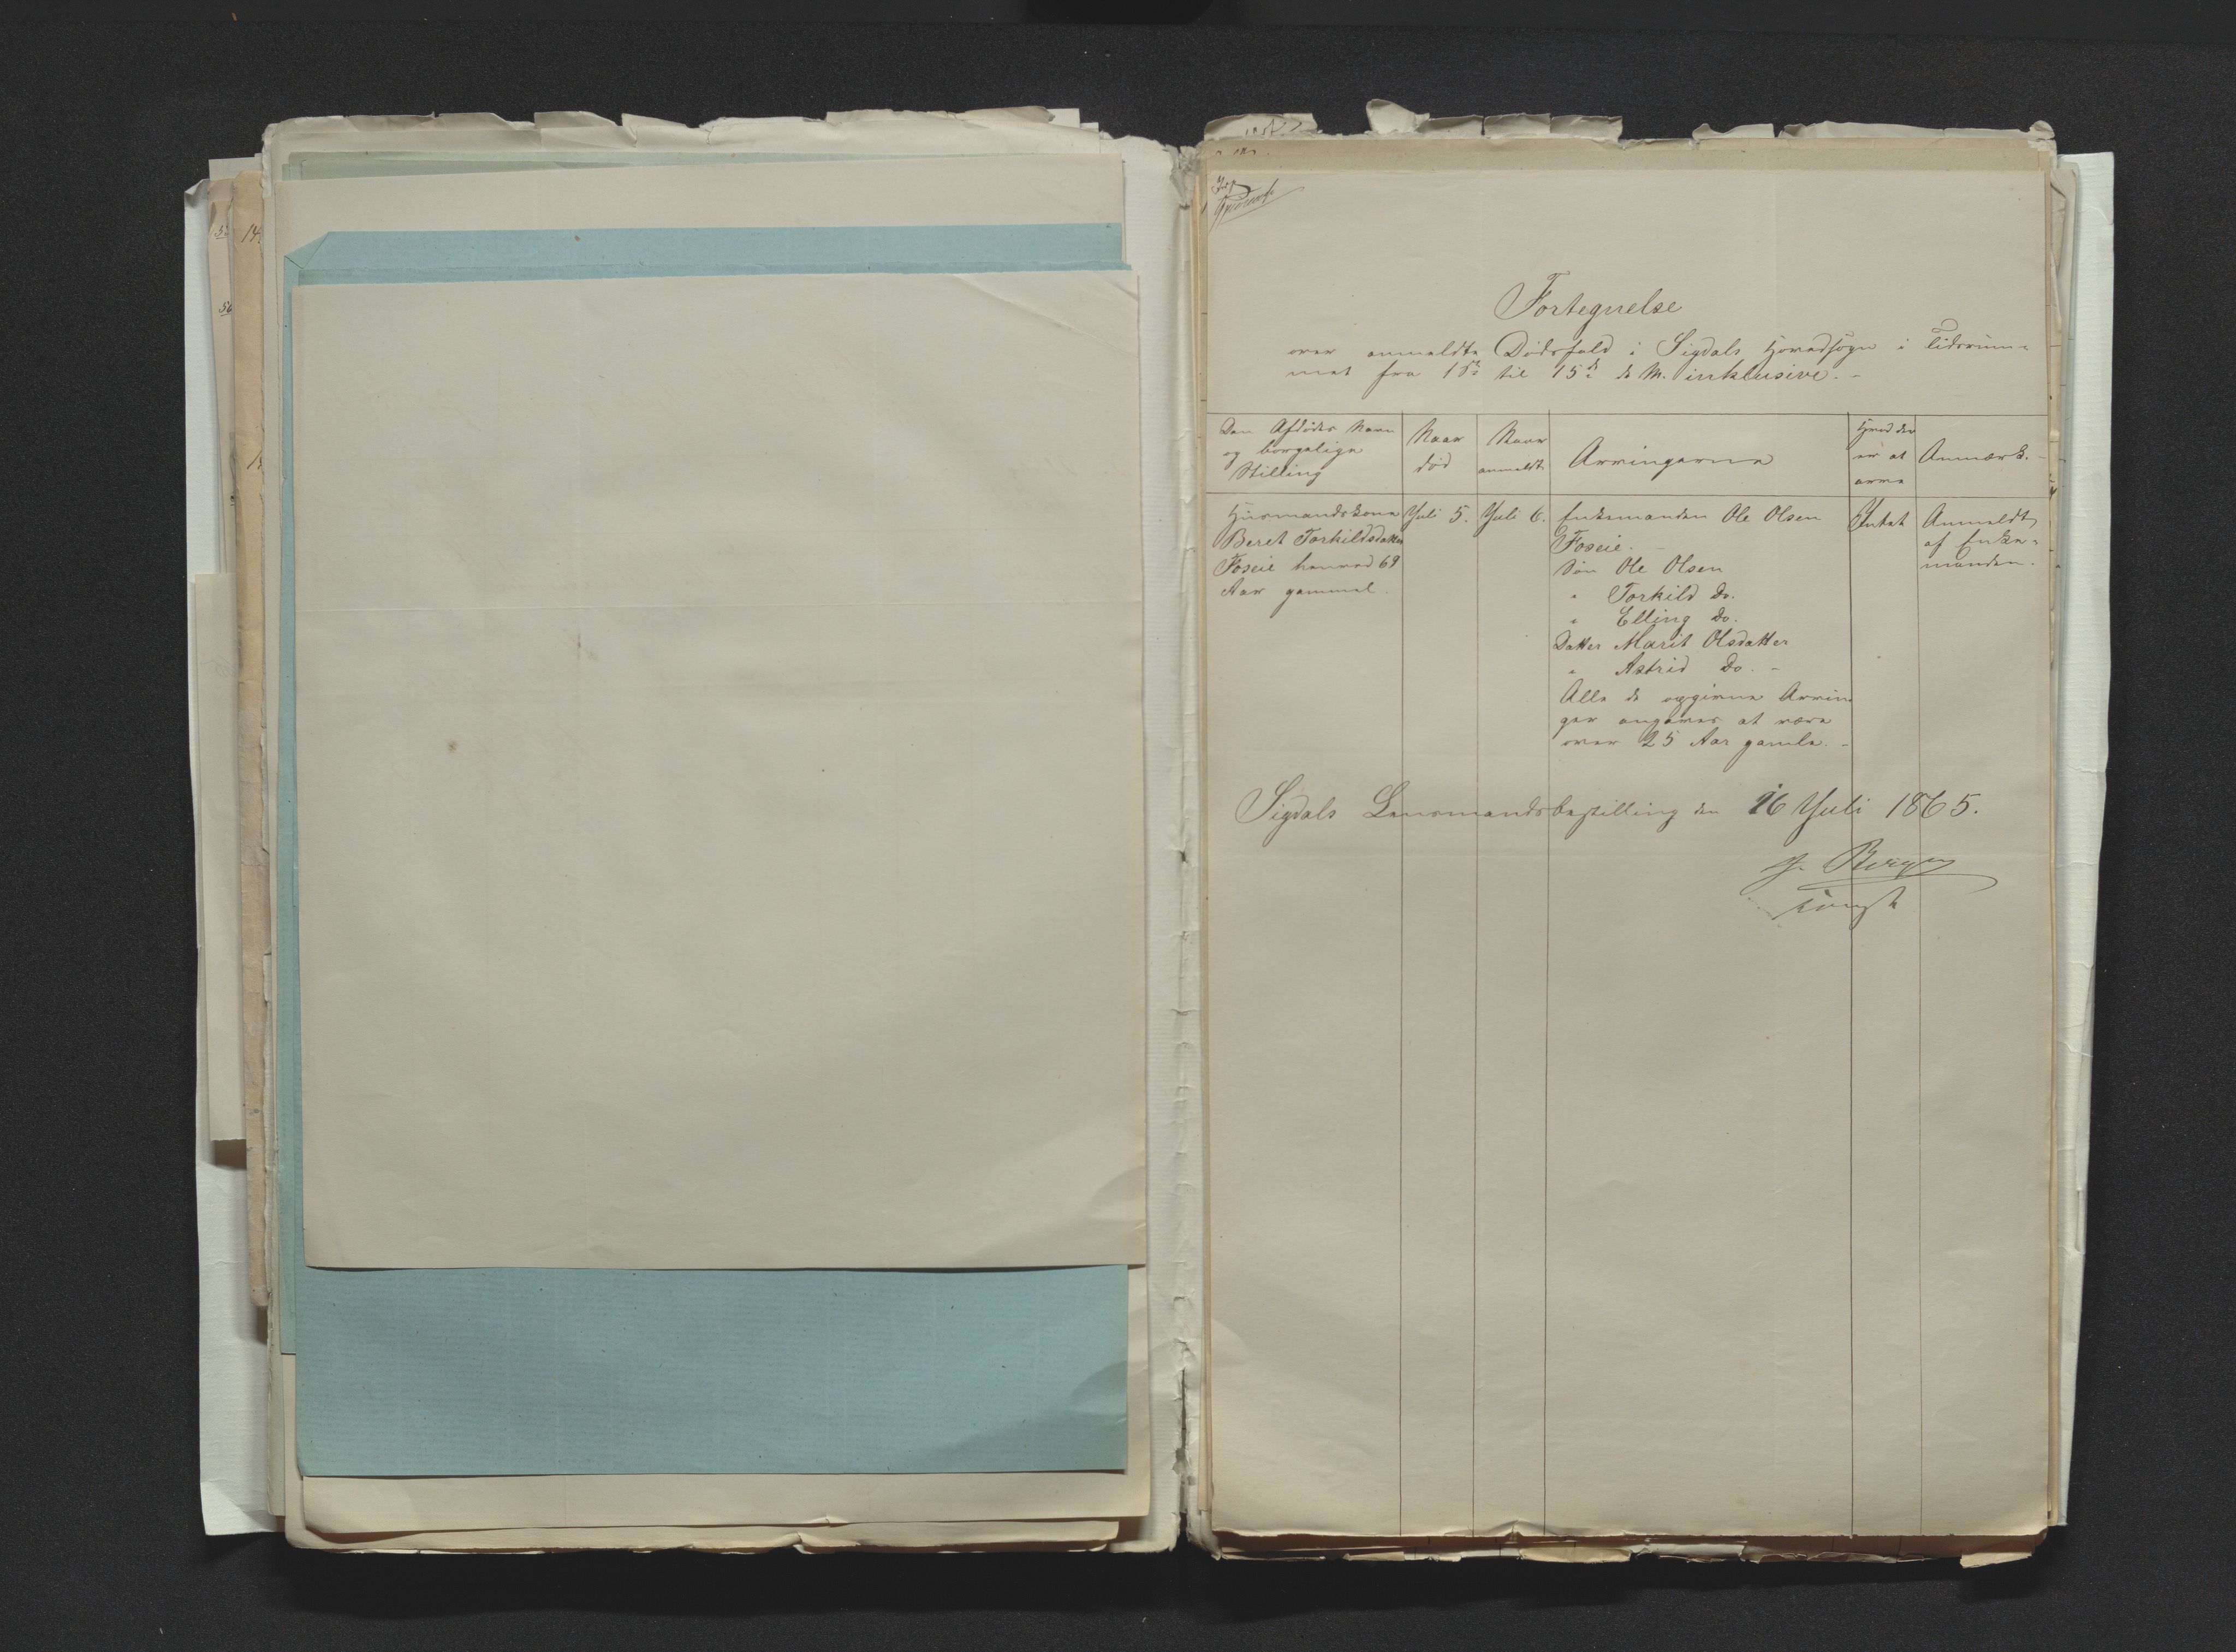 Fortegnelse
over anmeldte Dødsfald i Sigdals Hovedsogn i Tidsrum-
met fra 1ste til 15de ds M. inklusive.
Den Afdødes Navn
og borgelige
Stilling
Naar
død
Naar
anmeldt
Arvingerne
Hvad der
er at
arve
Anmærk.
Huusmandskone
Beret Torkildsdatter
Foseie henved 69
Aar gammel.
Juli 5.
Juli 6.
Enkemanden Ole Olsen
Foseie.
Søn Ole Olsen
" Torkild Do.
" Elling Do.
Datter Marit Olsdatter
" Astrid Do. -
Alle de opgivne Arvin
ger angaves at være
over 25 Aar gamle. -
Intet
Anmeldt
af Enke-
manden.
Sigdals Lensmandsbestilling den 16 Juli 1865.